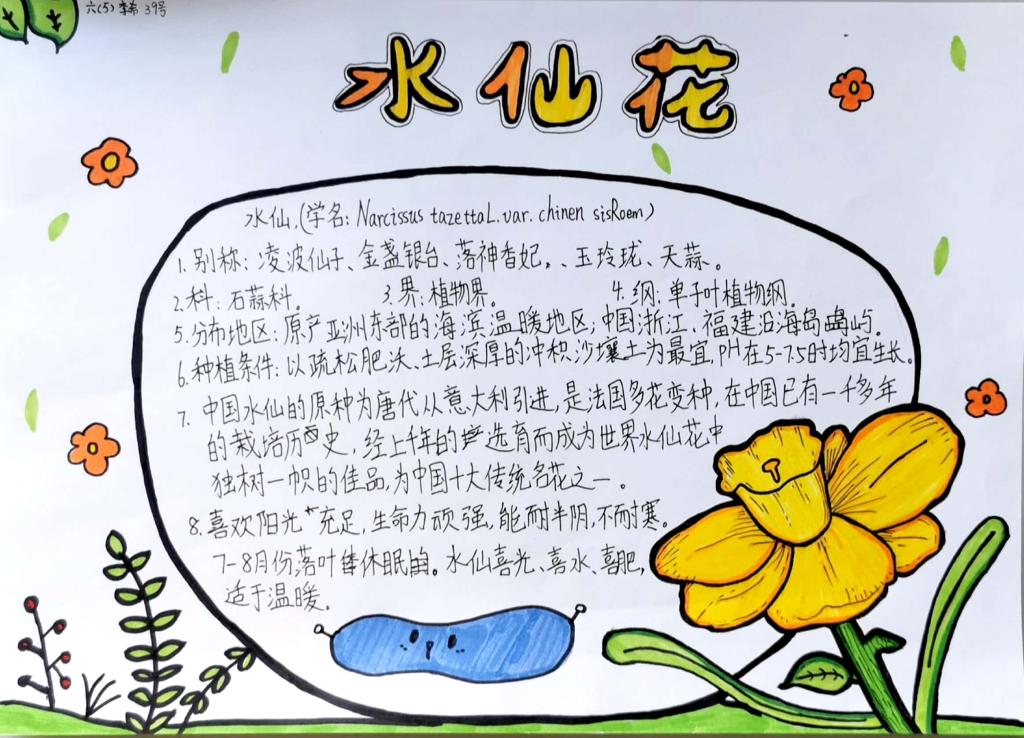 六(5) 李希 39号
水仙花
水仙,(学名: Narcissus tazettaL.var. chinen sisRoem)
1. 别称: 凌波仙子、金盏银台、落神香妃,、玉玲珑、天蒜。
2.科: 石蒜科。 3.界: 植物界。 4.纲: 单子叶植物纲。
5.分布地区: 原产亚洲东部的海滨温暖地区; 中国浙江、福建沿海岛屿。
6.种植条件: 以疏松肥沃、土层深厚的冲积沙壤土为最宜, PH在5-7.5时均宜生长。
7. 中国水仙的原种为唐代从意大利引进, 是法国多花变种, 在中国已有一千多年
的栽培历史, 经上千年的选育而成为世界水仙花中
独树一帜的佳品, 为中国十大传统名花之一。
8.喜欢阳光充足, 生命力顽强, 能耐半阴, 不耐寒。
7-8月份落叶休眠。水仙喜光、喜水、喜肥,
适于温暖。